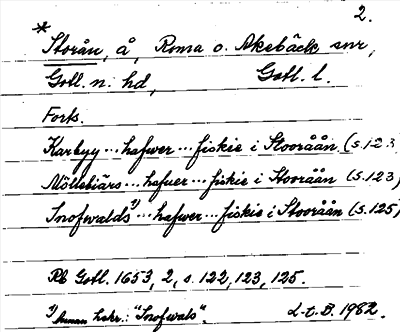 2.
*
Storån, å, Roma o. Akebäck snr,
Gotl. n. hd, Gotl. l.
Forts.
Karbyy ... hafwer ... fiskie i Stooråån (s. 123
Möllebiärs ... hafuer ... fiskie i Stooråån (s. 123)
Snofwalds 1) ... hafwer ... fiskie i Stooråån (s. 125)
Rb Gotl. 1653, 2, s. 122, 123, 125.
1) hskr.: "Snofwals". L-t. B. 1982.